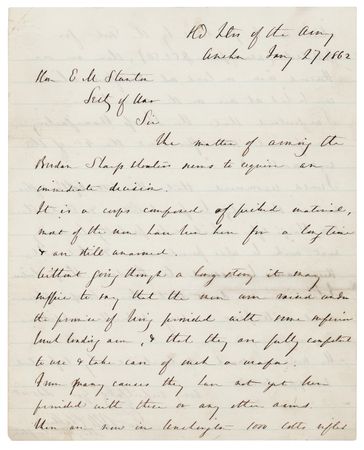 Hd Qtrs of the Army
Jany 27 1862
Hon E M Stanton
Secty of War
Sir
The matter of arming the
Berdan Sharp Shooters seems to require an
immediate decision.
It is a corps composed of picked material,
most of the men have been here for a long time
& are still unarmed.
Without going through a long story it may
suffice to say that the men were raised under
the promise of being provided with some superior
breech loading arm, & that they are fully competent
to use & take care of such a weapon.
From many causes they have not yet been
provided with these or any other arms.
There are now in Washington 1000 Colts rifled